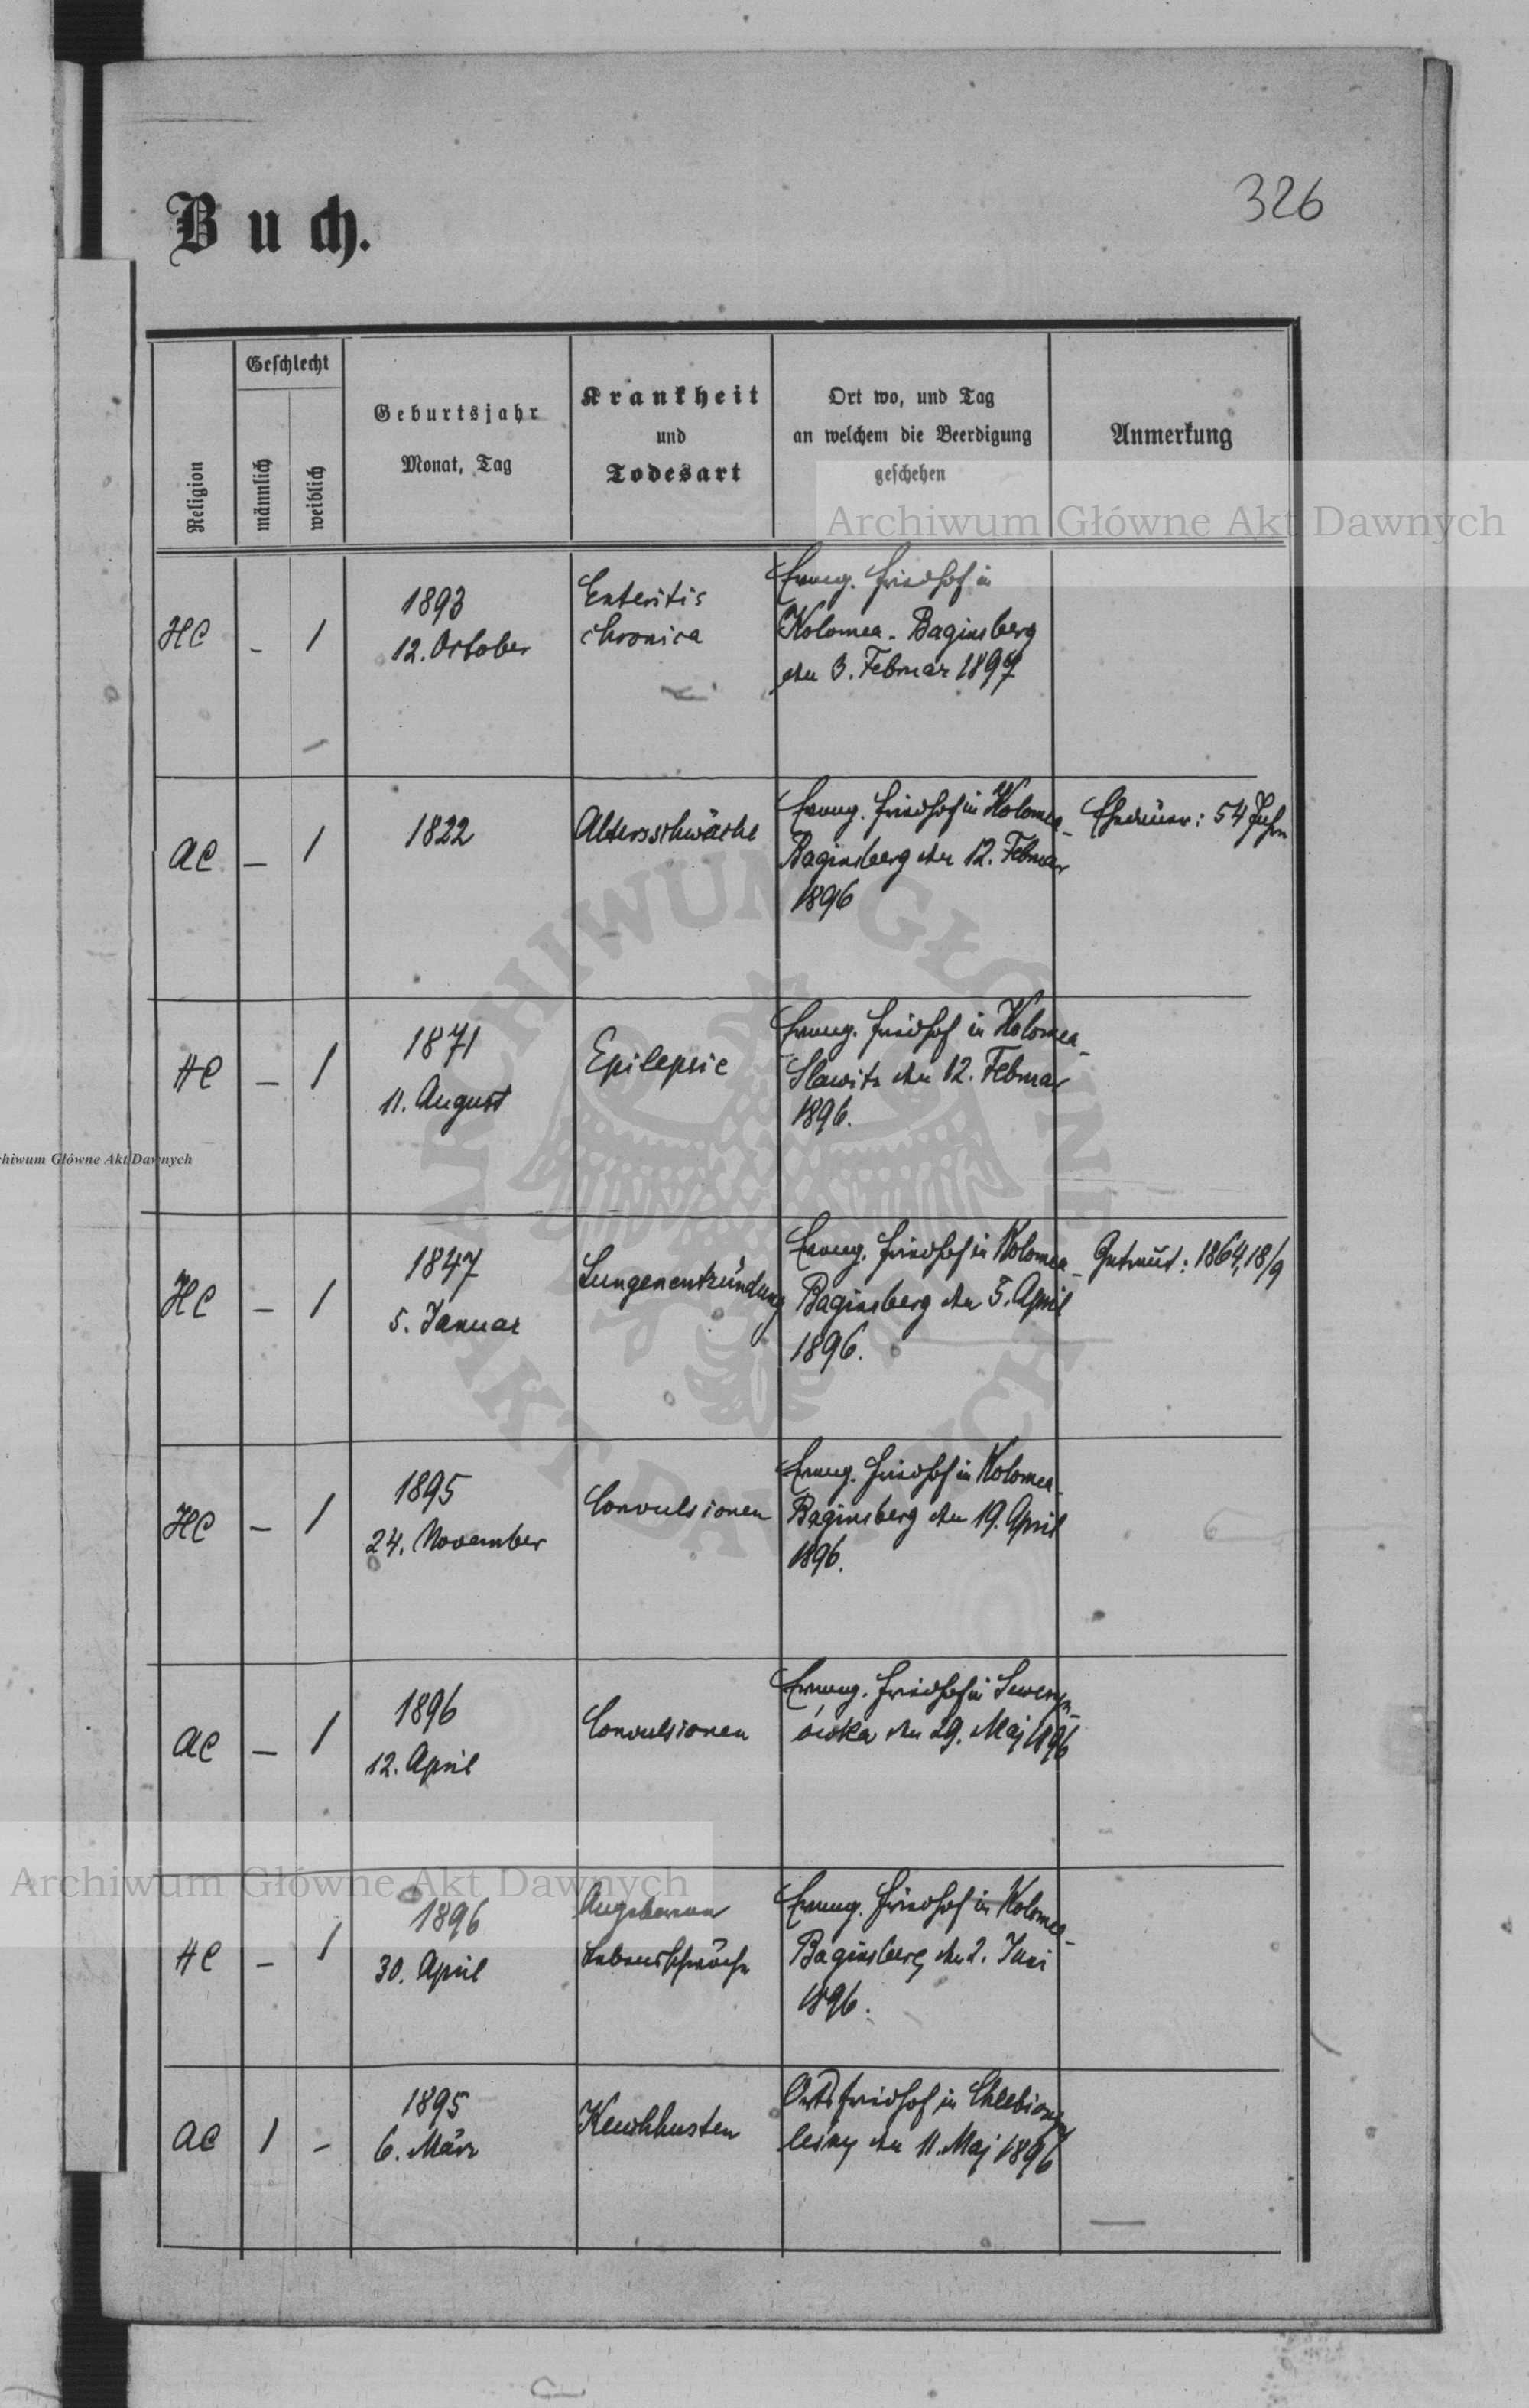 326
Buch.
Religion
Geschlecht
männlich
weiblich
Geburtsjahr
Monat, Tag
Krankheit
und
Todesart
Ort wo, und Tag
an welchem die Beerdigung
geschehen
Anmerkung
Archiwum Główne Akt Dawnych
HC - 1
1893
12. October
Enteritis
chronica
Evang. Friedhof in
Kolomea - Baginsberg
den 3. Februar 1897
AC - 1
1822
Altersschwäche
Evang. Friedhof in Kolomea-
Baginsberg den 12. Februar
1896
Ehedauer: 54 Jahre
HC - 1
1871
11. August
Epilepsie
Evang. Friedhof in Kolomea-
Slawitz den 12. Februar
1896.
Archiwum Główne Akt Dawnych
HC - 1
1847
5. Januar
Lungenentzündung
Evang. Friedhof in Kolomea-
Baginsberg den 5. April
1896.
Getraut: 1864, 18/9
HC - 1
1895
24. November
Convulsionen
Evang. Friedhof in Kolomea-
Baginsberg den 19. April
1896.
AC - 1
1896
12. April
Convulsionen
Evang. Friedhof in Seweryn-
ówka den 29. Maj 1896
Archiwum Główne Akt Dawnych
HC - 1
1896
30. April
Angeborene
Lebensschwäche
Evang. Friedhof in Kolomea-
Baginsberg den 2. Juni
1896.
AC 1 -
1895
6. März
Keuchhusten
Ortsfriedhof in Chlebiczyn
leśny den 11. Maj 1896
ARCHIWUM GŁÓWNE AKT DAWNYCH